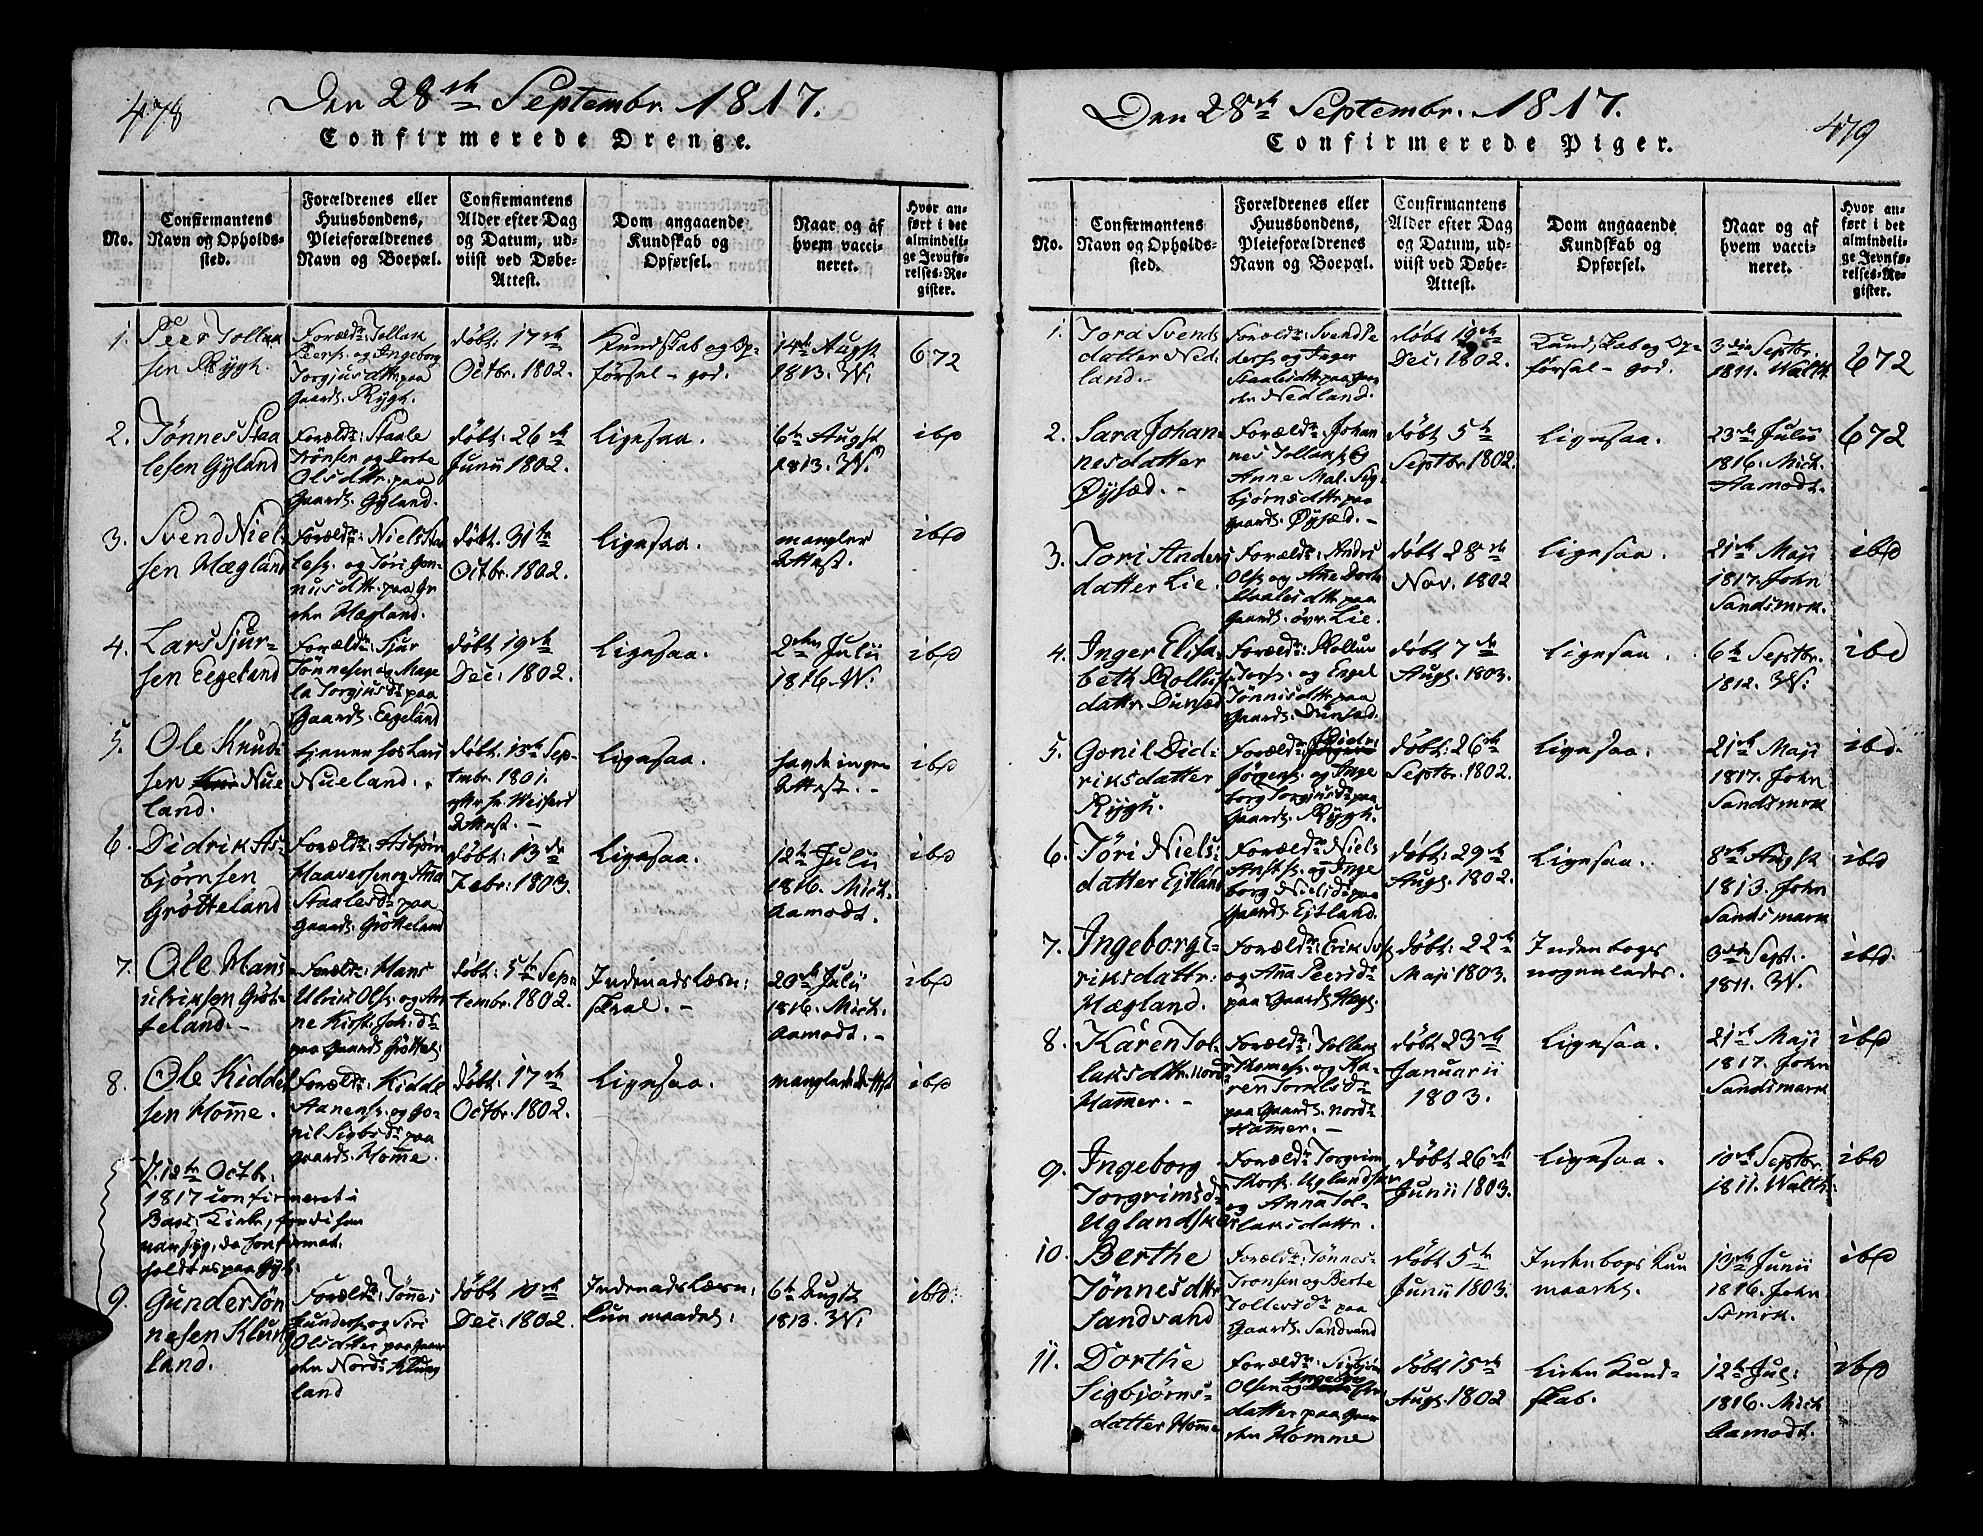 478
Den 28de Septembr. 1817.
Confirmerede Drenge.
No.
Confirmantens
Navn og Opholds-
sted.
Forældrenes eller
Huusbondens,
Pleieforældrenes
Navn og Boepæl.
Confirmantens
Alder efter Dag
og Datum, ud-
viist ved Døbe-
Attest.
Dom angaaende
Kundskab og
Opførsel.
Naar og af
hvem vacci-
neret.
Hvor an-
ført i det
almindeli-
ge Jevnfø-
relses-Re-
gister.
1.
Peer Tollak
sen Rygh.
Forældr: Tollak
Peers: og Ingeborg
Torgjusdttr. paa
Gaard: Rygh.
døbt: 17de
Octbr. 1802.
Kundskab og Op-
førsel - god.
14de Augst
1813. W:
672
2.
Tønnes Staa
lesen Gyland
Forældr: Staale
Trønsen og Dorte
Olsdttr. paa
Gaard: Gyland.
døbt: 26de
Junii 1802.
Ligesaa.
6te Augst
1813. W:
ibd
3.
Svend Niel-
sen Hægland
Forældr: Niels Staa
les: og Tøri Gon-
nusdttr. paa Gr
den Hægland.
døbt: 31te
Octbr. 1802.
Ligesaa.
mangler
Attest.
ibd
4.
Lars Sjur-
sen Eegeland
Forældr: Sjur
Tønnesen og Mage
la Torgjusd: paa
Gaard: Eegeland
døbt: 19de
Dec: 1802.
Ligesaa.
2den Julii
1816. W:
ibd
5.
Ole Knud-
sen Nue
land.
tjener hos Lars
Nueland.
døbt: 13de Sep-
tembr. 1801.
Attest. -
Ligesaa.
havde ingen
Attest. -
ibd
6.
Didrik As-
bjørnsen
Grøtteland
Forældr: Asbjørn
Haaversen og Ana
Staalesd: paa
Gaard: Grøtteland
døbt: 13de
Febr: 1803.
Ligesaa.
12te Julii
1816. Mich.
Aamodt.
ibd
7.
Ole Hans
Ulriksen Grøt-
teland. -
Forældr: Hans
Ulrik Ols: og An
ne Kirst: Joh:d:
paa Gaard: Grøttel:
døbt: 5te Sep-
tembr. 1802.
Indenadslæsn:
skral. -
20de Julii
1816. Mich.
Aamodt. -
ibd
8.
Ole Kiddel
sen Homme.
Forældr: Kiddel
Aanens: og Go-
nil Sigbsd: paa
Gaard: Homme.
døbt: 17de
Octbr. 1802.
Ligesaa.
manglede Attest
ibd
12te Octbr.
1817 confirmeret i
Kirke, fordi han
var syg, da Confirmat.
holdtes paa Gyl:
9.
Gunder Tøn
nesen Klung
land.
Forældr: Tønnes
Gunders: og Siri
Olsdatter paa Gaar
den Nord: Klung
land
døbt 10de
Dec: 1802.
Indenadslæsn:
kun maadel:
6te Augst
1813. W:
ibd:
479
Den 28de Septembr. 1817.
Confirmerede Piger.
No.
Confirmantens
Navn og Opholds-
sted.
Forældrenes eller
Huusbondens,
Pleieforældrenes
Navn og Boepæl.
Confirmantens
Alder efter Dag
og Datum, ud-
viist ved Døbe-
Attest.
Dom angaaende
Kundskab og
Opførsel.
Naar og af
hvem vacci-
neret.
Hvor an-
ført i det
almindeli-
ge Jevnfø-
relses-Re-
gister.
1.
Tora Svends
datter Ned-
land. -
Forældr: Svend
Peders: og Inger
Staalesdttr. paa Gaar
den Nedland.
døbt 19de
Dec: 1802.
Kundskab og Op-
førsel - god.
3die Septbr.
1811. Walth.
672
2.
Sara Johan-
nesdatter
Øysæd. -
Forældr: Johan
nes Tollaks: og
Anne Mal. Sig-
bjørnsdttr. paa
Gaard: Øysæd. -
døbt 5te
Septbr. 1802.
Ligesaa.
23de Julii
1816. Mich.
Aamodt.
672
3.
Tori Anders
datter Lie.
Forældr: Anders
Ols: og Ane Dorte
Staalesdttr. paa
Gaard: øvr. Lie.
døbt 28de
Nov. 1802
Ligesaa.
21de Maji
1817. John
Sandsmrk.
ibd
4.
Inger Elisa
beth Rollufs
dattr. Dunsæd
Forældr: Rolluf
Tors: og Engel
Tønnisdttr. paa
Gaard: Dunsæd.
døbt 7de
Augs. 1803.
Ligesaa.
6te Septbr.
1812. W:
ibd
5.
Gonil Did-
riksdatter
Rygh.
Forældr: Didr:
Jørgens: og Inge
borg Torgjusd: paa
Gaard: Rygh.
døbt: 26de
Septbr. 1802.
Ligesaa.
21de Maji
1817. John
Sandsmrk
ibd.
6.
Tøri Niels-
datter Ejtland
Forældr: Niels
og Inge
borg Nielsd: paa
Gaard: Ejtland.
døbt: 29de
Augs. 1802.
Ligesaa.
8de Augst
1813. John
Sandsmark
ibd
7.
Ingeborg E-
riksdattr.
Hægland.
Forældr: Erik
og Ana Peersd:
paa Gaard: Hægl.
døbt: 22de
Maji 1803.
Indenbogs
nogenledes.
3die Sept.
1811. W.
ibd.
8.
Karen Tol-
laksdttr. Nord-
Hammer. -
Forældr: Tollak
Thomess: og Ka-
ren Torkilsd:
paa Gaard: Nord:
Hammer. -
døbt 23de
Januarii
1803.
Ligesaa.
21de Maji
1817. John
Sandsmark
ibd
9.
Ingeborg
Torgrimsd:
Uglandsker
Forældr: Torgrim
Thors: Uglandsker
og Anna Tol-
laksdattr.
døbt 26de
Junii 1803.
Ligesaa.
10de Septbr.
1811. Walth:
ibd
10.
Berthe
Tønnesdttr
Sandvand
Forældr: Tønnes
Tronsen og Berte
Tollefsd: paa
Gaard: Sandvand
døbt 5te
Junii 1803.
Inden bogs kun
maadel.
13de Junii
1816. John
Ssmrk.
ibd
11.
Dorthe
Sigbjørns-
datter Homme
Forældr: Sigbjørn
Olsen og Ingeborg
datter paa Gaar
den Homme
døbt 15de
Augs. 1802
Liden Kund-
skab.
12te Jul:
1816. Mich
Aamodt.
ibd